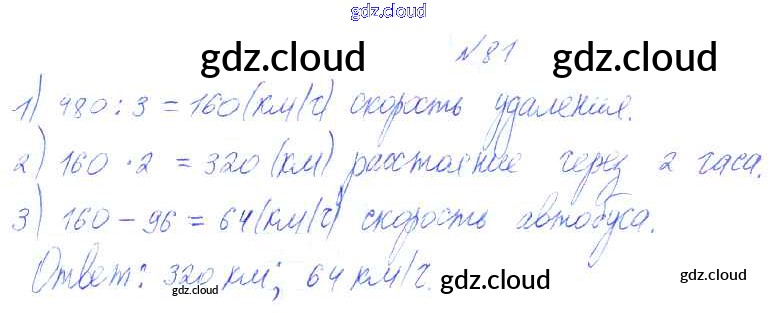 gdz.cloud
gdz.cloud № 81 gdz.cloud
1) 480 : 3 = 160 (км/ч) скорость удаления.
2) 160 · 2 = 320 (км) расстояние через 2 часа.
3) 160 – 96 = 64 (км/ч) скорость автобуса.
Ответ: 320 км; 64 км/ч.
gdz.cloud gdz.cloud gdz.cloud